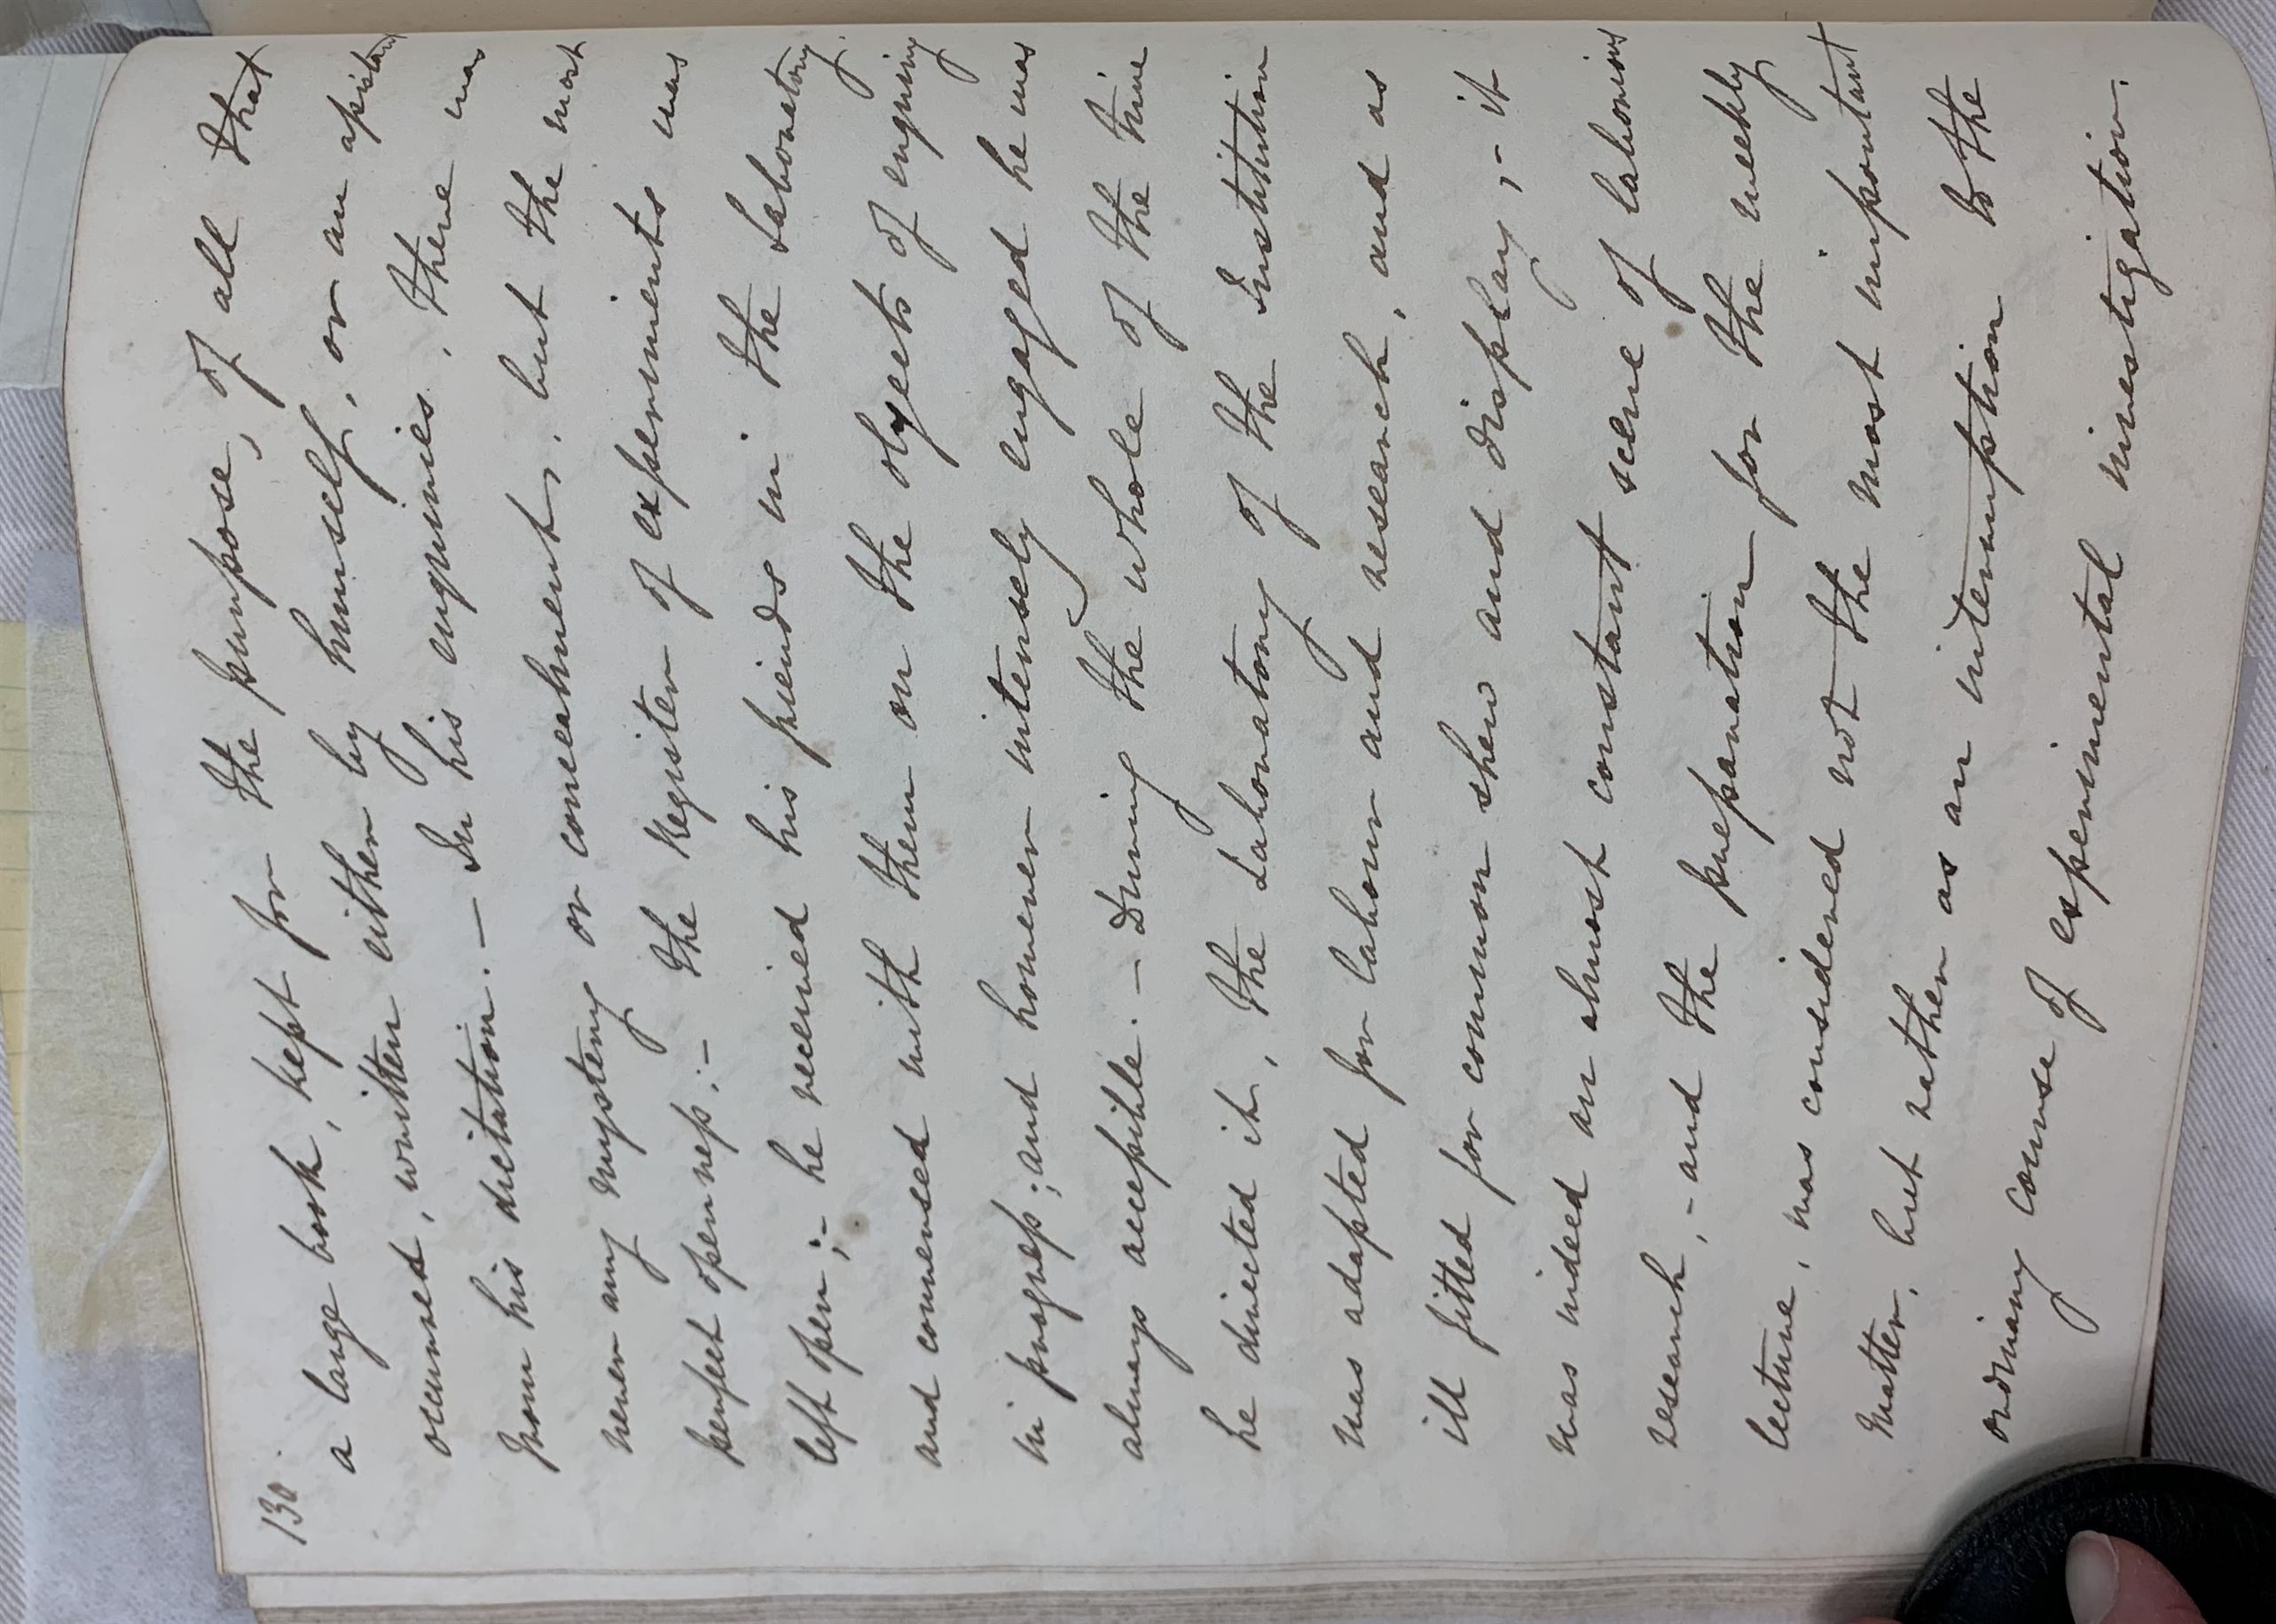 130
a large book, kept for the purpose, of all that
occurred, written either by himself, or an assistant
from his dictation. — In his enquiries, there was
never any mystery or concealment, but the most
perfect openness; – the Register of experiments was
left open; – he received his friends in the Laboratory
and conversed with them on the objects of enquiry
in progress; and however intensely engaged he was
always accessible. — During the whole of the time
he directed it, the Laboratory of the Institution
was adapted for labour and research, and as
ill fitted for common shew and display, – it
was indeed an almost constant scene of laborious
research, – and the preparation for the weekly
lecture, was considered not the most important
matter, but rather as an interruption to the
ordinary course of experimental investigation.